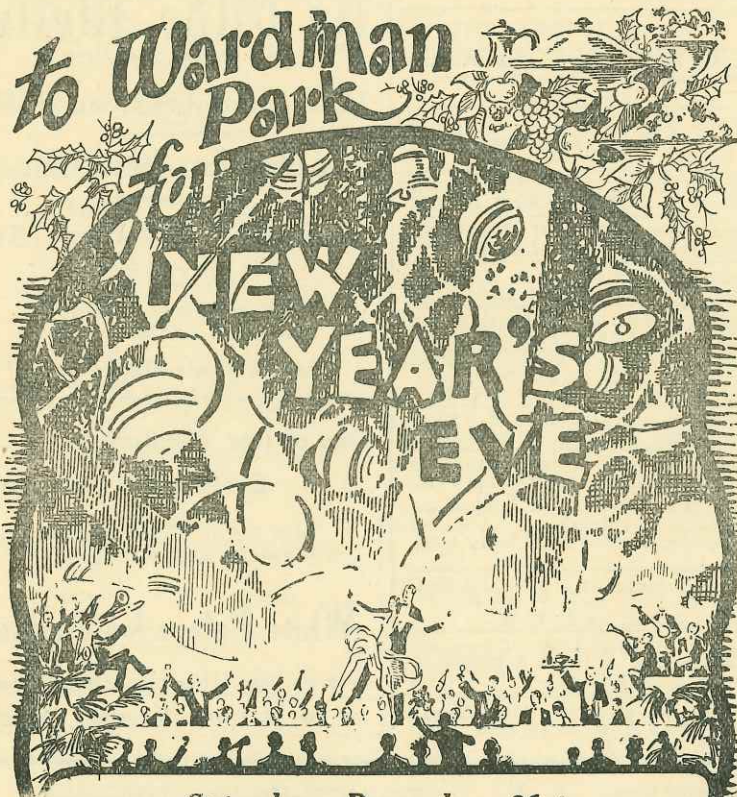 to Wardman
Park
for
NEW
YEAR'S
EVE